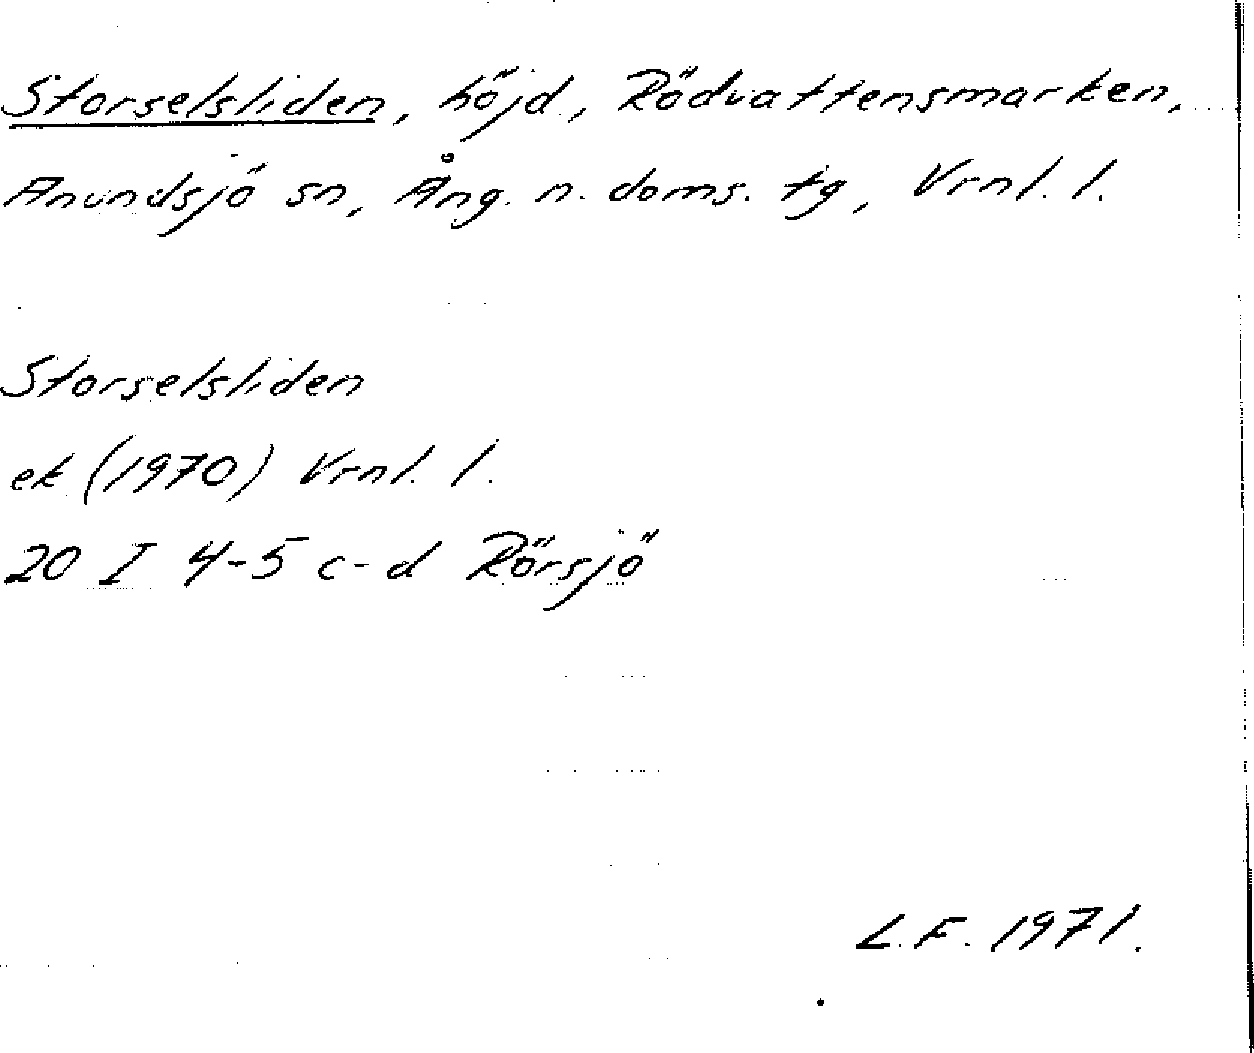 Storselsliden, höjd, Rödvattensmarken,
Anundsjö sn, Ång. n. doms. tg, Vrnl. l.
Storselsliden
ek (1970) Vrnl. l.
20 I 4-5 c-d Rörsjö
L.F. 1971.